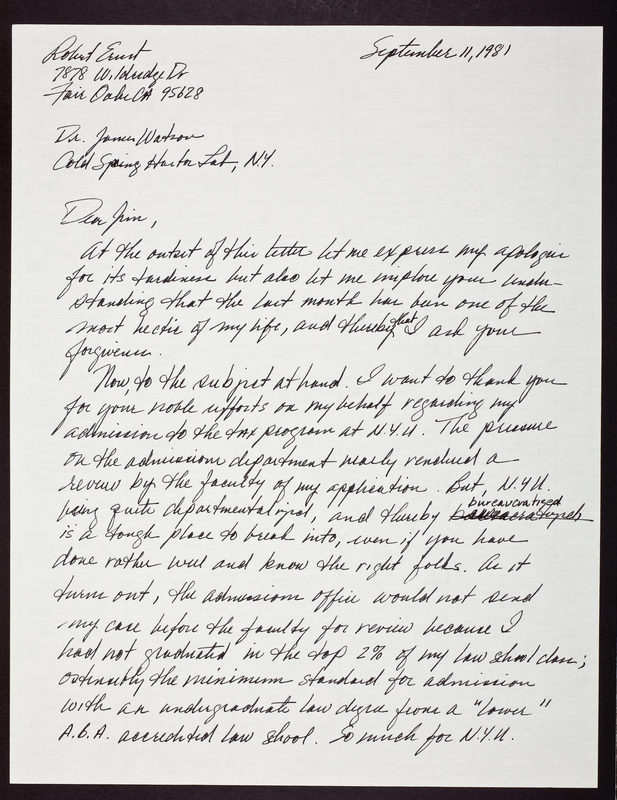 Robert Ernst September 11, 1981
7878 Wildridge Dr
Fair Oaks CA 95628
Dr. James Watson
Cold Spring Harbor Lab, N.Y.
Dear Jim,
At the outset of this letter let me express my apologies
for its tardiness but also let me implore your under-
standing that the last month has been one of the
most hectic of my life, and thereby that I ask your
forgiveness.
Now, to the subject at hand. I want to thank you
for your noble efforts on my behalf regarding my
admission to the tax program at N.Y.U. The pressure
on the admissions department nearly rendered a
review by the faculty of my application. But, N.Y.U.
being quite departmentalized, and thereby bureaucratized
is a tough place to break into, even if you have
done rather well and know the right folks. As it
turns out, the admissions office would not send
my case before the faculty for review because I
had not graduated in the top 2% of my law school class;
ostensibly the minimum standard for admission
with an undergraduate law degree from a "lower"
A.B.A. accredited law school. So much for N.Y.U.